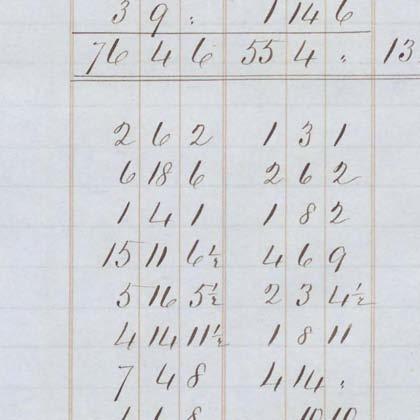 3 9 : 1 14 6
76 4 6 55 4 . 13
2 6 2 1 3 1
6 18 6 2 6 2
1 4 1 1 8 2
15 11 6½ 4 6 9
5 16 5½ 2 3 4½
4 14 11½ 1 8 11
7 4 8 4 14 .